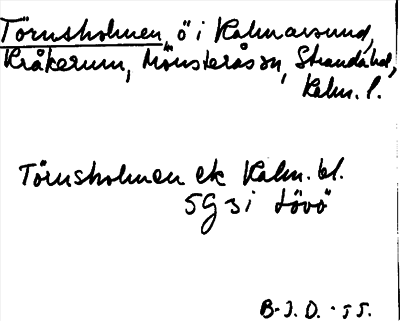 Törnsholmen, ö i Kalmarsund,
Kråkerum, Mönsterås sn, Stranda hd,
Kalm. l.
Törnsholmen ek Kalm. bl.
5G 3i Lövö
B-J. D. - 55.